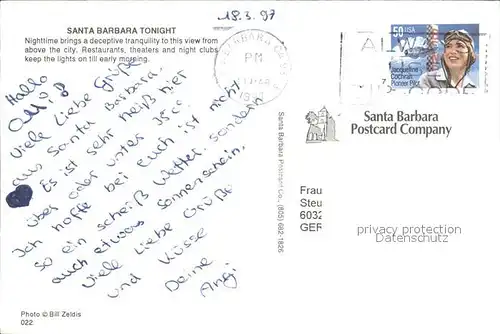 18.3.97
SANTA BARBARA TONIGHT
Nighttime brings a deceptive tranquility to this view from
above the city. Restaurants, theaters and night clubs
keep the lights on till early morning.
PM
50 USA
Jacqueline
Cochran
Pioneer Pilot
Hallo
Viele Liebe Grüße
aus Santa Barbara.
Es ist sehr heiß hier
über oder unter 35c°.
Ich hoffe bei euch ist nicht
so ein scheiß Wetter. sondern
auch etwas Sonnenschein.
Viele Liebe Grüße
und Küsse
Deine
Angi
Santa Barbara
Postcard Company
Santa Barbara Postcard Co., (805) 682-1826
Frau
Steu
6032
GER
privacy protection
Photo © Bill Zeldis
022